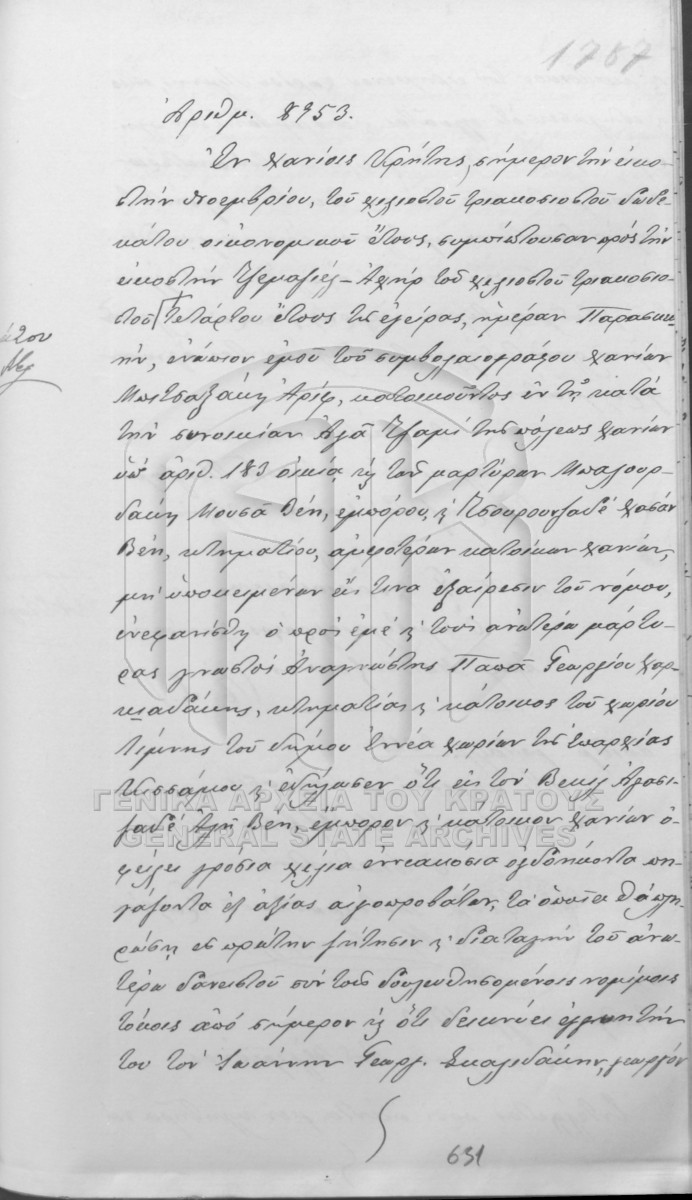 1787
Ἀριθμ. 8953.
Ἐν Χανίοις Κρήτης, σήμερον τὴν εἰκο-
στὴν Νοεμβρίου, τοῦ χιλιοστοῦ τριακοσιοστοῦ δωδε-
κάτου οἰκονομικοῦ ἔτους, συμπίπτουσαν πρὸς τὴν
εἰκοστὴν Τζεμαζιέλ-Ἀχὴρ τοῦ χιλιοστοῦ τριακοσιο-
στοῦ τετάρτου ἔτους τῆς ἐγείρας, ἡμέραν Παρασκευ-
ήν, ἐνώπιον ἐμοῦ τοῦ συμβολαιογράφου Χανίων
Ἀρίφ, κατοικοῦντος ἐν τῇ κατὰ
τὴν συνοικίαν Ἀγᾶ Τζαμὶ τῆς πόλεως Χανίων
ὑπ' ἀριθ. 183 οἰκίᾳ, καὶ τῶν μαρτύρων Μπαλουρ-
δάκη Μουσᾶ Βέη, ἐμπόρου, καὶ Τσουρουνζαδὲ Χασὰν
Βέη, κτηματίου, ἀμφοτέρων κατοίκων Χανίων,
μὴ ὑποκειμένων εἴς τινα ἐξαίρεσιν τοῦ νόμου,
ἐνεφανίσθη ὁ πρὸς ἐμὲ καὶ τοὺς ἀνωτέρω μάρτυ-
ρας γνωστὸς Ἀναγνώστης Παπᾶ Γεωργίου Χαρ-
κιαδάκης, κτηματίας καὶ κάτοικος τοῦ χωρίου
τοῦ δήμου Ἐννέα Χωρίων τῆς ἐπαρχίας
Κισσάμου καὶ ἐδήλωσεν ὅτι εἰς τὸν Βεκὶλ Ἀγασι-
ζαδὲ Ἀλῆ Βέη, ἔμπορον καὶ κάτοικον Χανίων ὀ-
φείλει γρόσια χίλια ἐννεακόσια ὀγδοήκοντα πη-
γάζοντα ἐξ ἀξίας αἰγοπροβάτων, τὰ ὁποῖα θὰ πλη-
ρώσῃ εἰς πρώτην ζήτησιν καὶ διαταγὴν τοῦ ἀνω-
τέρω δανειστοῦ σὺν τοῖς δουλευθησομένοις νομίμοις
τόκοις ἀπὸ σήμερον καὶ ὅτι δεικνύει ἐγγυητήν
του τὸν Ἰωάννην Γεωργ. Σκαλιδάκην, γεωργὸν
631
ΓΕΝΙΚΑ ΑΡΧΕΙΑ ΤΟΥ ΚΡΑΤΟΥΣ
GENERAL STATE ARCHIVES